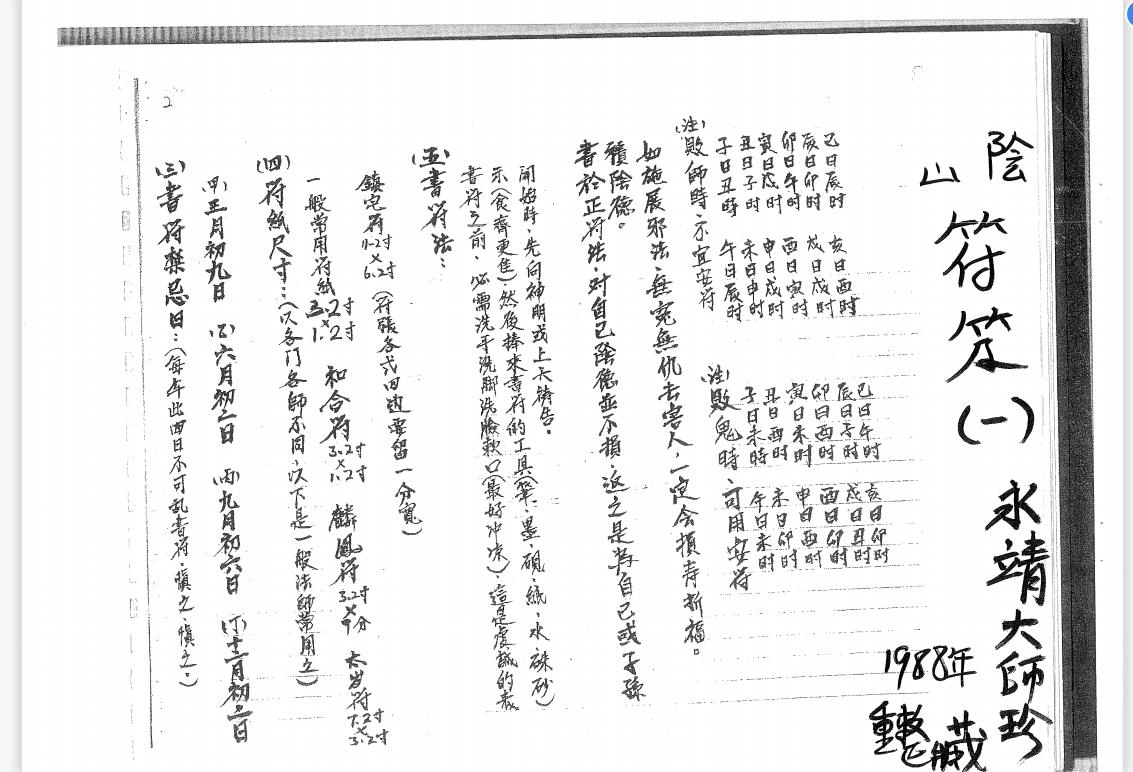 陰山符笈(一) 永靖大師珍藏
1988年
重整
2
(三)書符禁忌日：(每年此四日不可乱書符，慎之，慎之。)
(甲)三月初九日 (乙)六月初二日 (丙)九月初六日 (丁)十二月初二日
(四)符紙尺寸：(以各门各師不同，以下是一般法師常用之)
一般常用符紙3.2寸×1.2寸 和合符3.2寸×1.2寸 麟鳳符3.2寸×9分 太岁符7.2寸×3.2寸
鎮宅符11.2寸×6.2寸 (符張各式四边要留一分寬)
(五)書符法：
書符之前，必需洗手洗脚洗臉漱口(最好冲凉)，這是虔誠的表
示(食齋更佳)，然後捧來書符的工具(筆、墨、硯、紙、水、硃砂)
開始時，先向神明或上大禱告。
書於正符法，对自己陰德並不損，返之是為自己或子孫
積陰德。
如施展邪法，無冤無仇去害人，一定会損寿折福。
(注)敗師時、不宜安符
子日丑時 午日辰时
丑日子时 未日申时
寅日戌时 申日戌时
卯日午时 酉日寅时
辰日卯时 戌日戌时
巳日辰时 亥日酉时
(注)敗鬼時、可用安符
子日未時 午日未时
丑日酉时 未日卯时
寅日未时 申日酉时
卯日酉时 酉日卯时
辰日子时 戌日丑时
巳日午时 亥日卯时